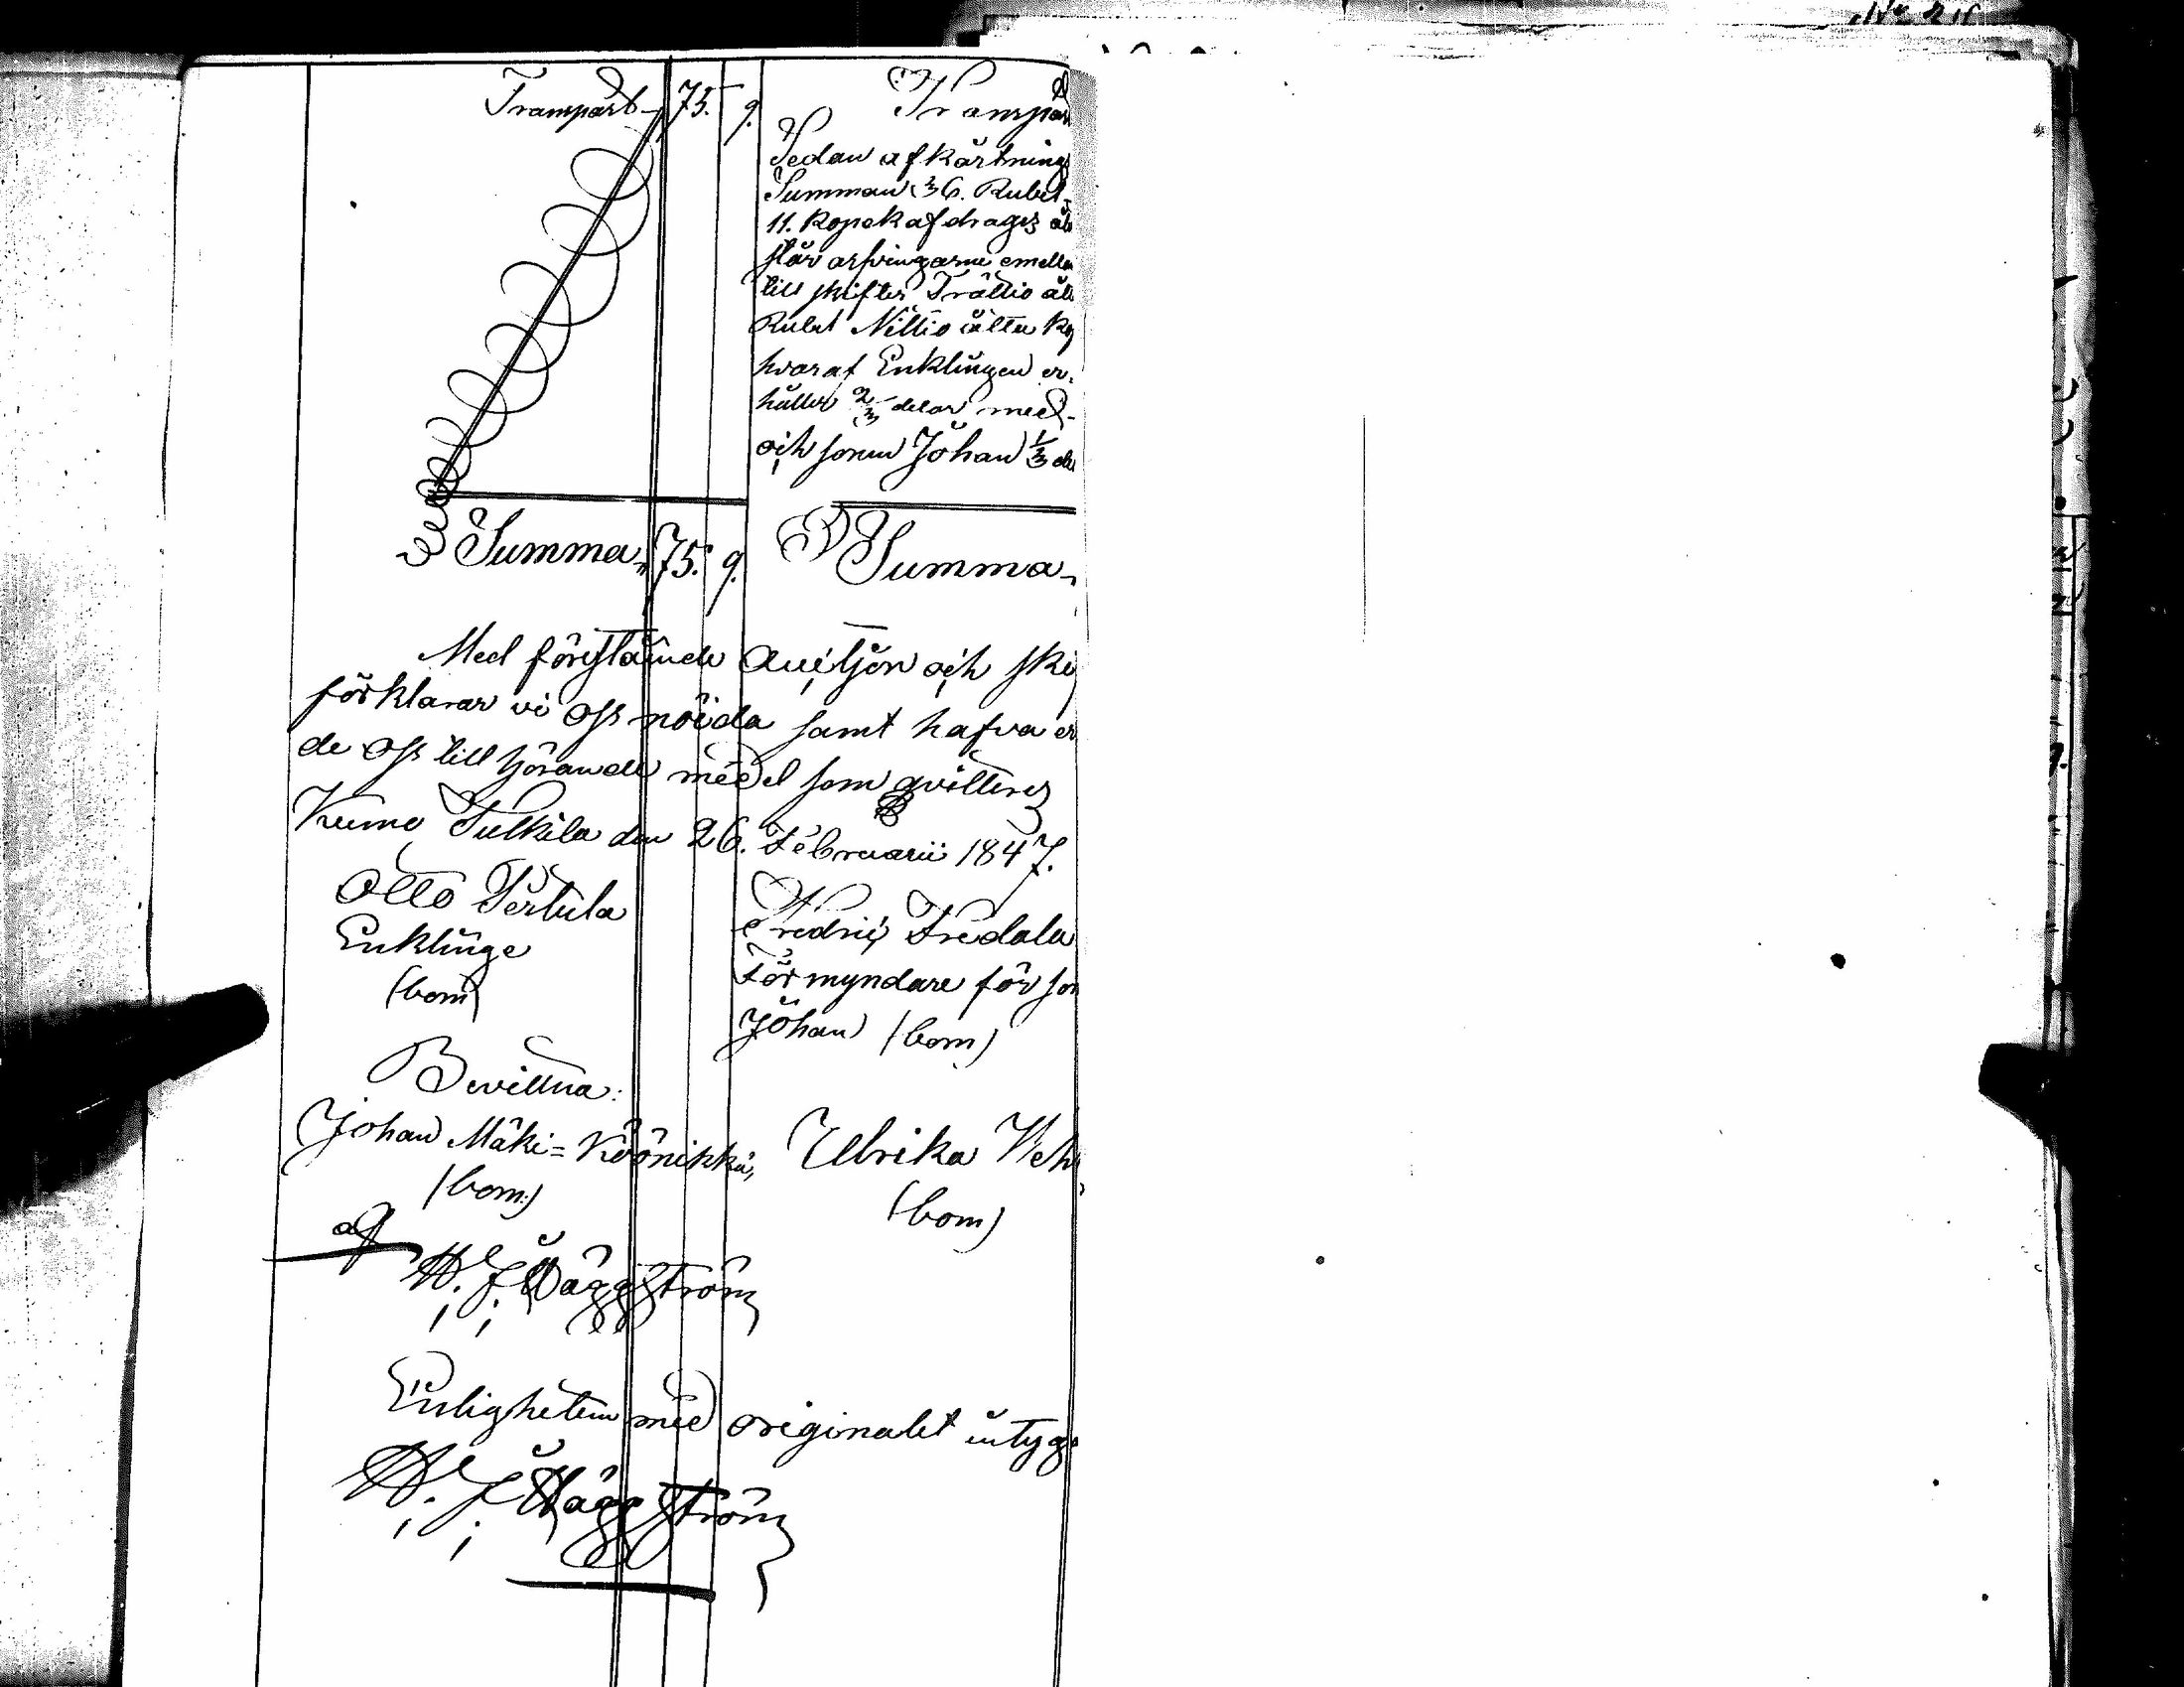 Transpört 75. 9.
Summa 75. 9.
Transpör
Sedan afkörtnings
Summan 36. Rubel
11. Kopek afdrages åt
står arfvingarne emella
till skiftes Trättio åt
Rubel Nittio åtta Kop
hvaraf Enklingen er-
håller 2/3 delar med
och sonen Johan 1/3 de
Summa
Med förestående Auctjon och ski
förklarar vi oss nöida samt hafva er
de oss till hörande medel som qvitteres
Kumo Tulkila den 26. Februarii 1847.
Otto Pertula
Enklinge
(bom)
Fredric Fredala
Förmyndare för son
Johan (bom)
Bevittna:
Johan Mäki=Köönikkä,
(bom)
Ulrika
(bom)
af
W. J. Häggström
Enligheten med originalet intyga
W. J. Häggström